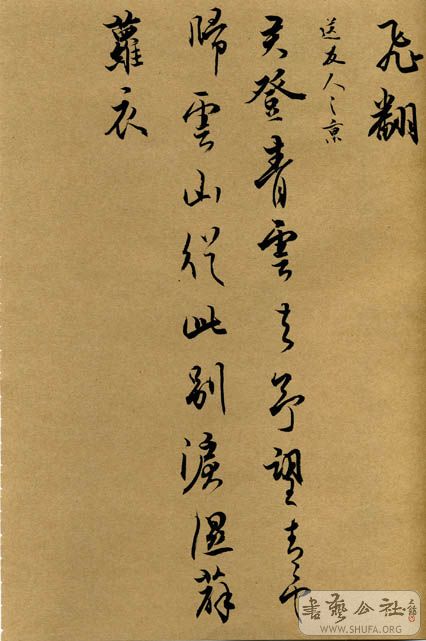 飛翻
送友人之京
君登青雲去予望青山
歸雲山從此別淚濕薜
蘿衣
書藝公社
WWW.SHUFA.ORG